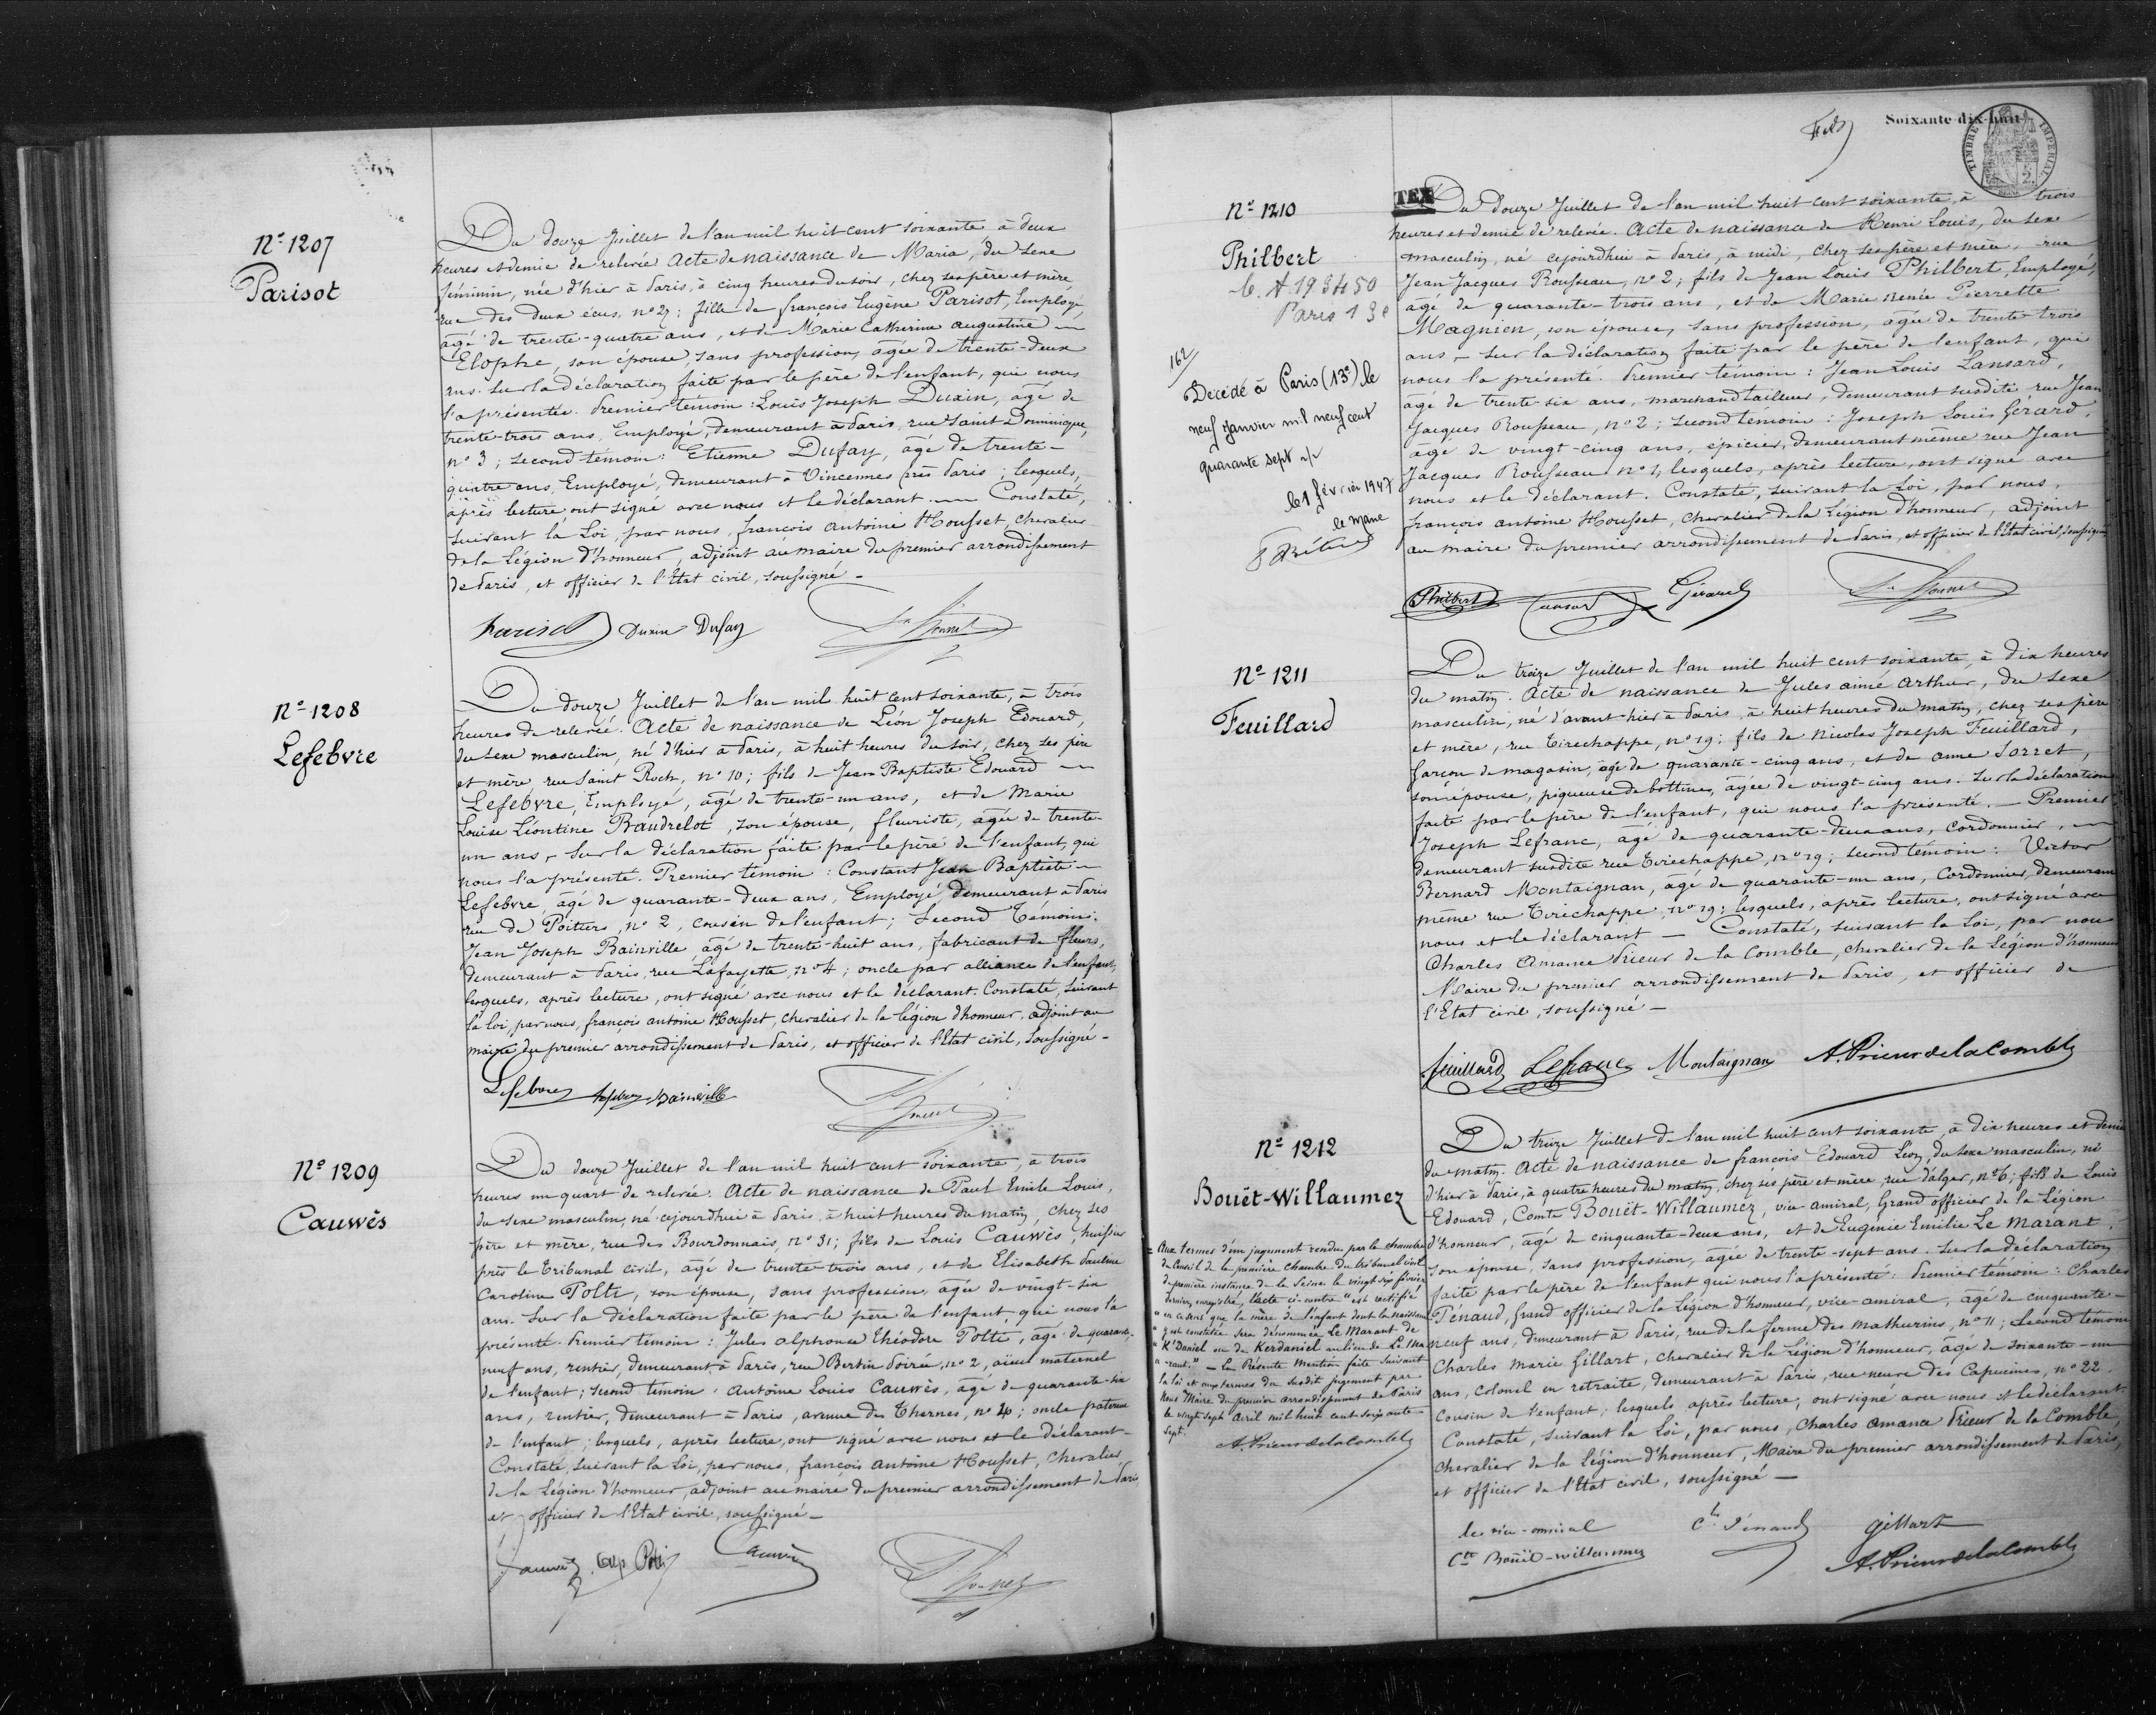 N° 1207
Parisot
Du douze Juillet de l'an mil huit cent soixante à deux
heures et demie de relevée Acte de naissance de Maria, du sexe
féminin, née d'hier à Paris, à cinq heures du soir, chez ses père et mère,
rue des deux écus, n° 27; fille de françois Eugène Parisot, Employé,
âgé de trente-quatre ans, et de Marie Catherine augustine
Elophe, son épouse, sans profession, âgée de trente-deux
ans. Sur la déclaration faite par le père de l'enfant, qui nous
l'a présentée. Premier témoin: Louis Joseph Duxin, âgé de
trente-trois ans, Employé, demeurant à Paris, rue Saint Dominique,
n° 3; second témoin: Etienne Dufay, âgé de trente-
quatre ans, Employé, demeurant à Vincennes près Paris; lesquels,
après lecture, ont signé avec nous et le déclarant. Constaté,
suivant la Loi, par nous, françois antoine Housset, chevalier
de la Légion d'honneur, adjoint au maire du premier arrondissement
de Paris, et officier de l'Etat civil, soussigné -
Parisot Duxin Dufay
N° 1208
Lefebvre
Du douze Juillet de l'an mil huit cent soixante, à trois
heures de relevée. Acte de naissance de Léon Joseph Edouard,
du sexe masculin, né d'hier à Paris, à huit heures du soir, chez ses père
et mère, rue Saint Roch, n° 10; fils de Jean Baptiste Edouard
Lefebvre, Employé, âgé de trente-un ans, et de Marie
Louise Léontine Baudrelot, son épouse, fleuriste, âgée de trente-
un ans, - Sur la déclaration faite par le père de l'enfant, qui
nous l'a présenté. Premier témoin: Constant Jean Baptiste
Lefebvre, âgé de quarante-deux ans, Employé, demeurant à Paris
rue de Poitiers, n° 2, cousin de l'enfant; Second Témoin:
Jean Joseph Bainville, âgé de trente-huit ans, fabricant de fleurs,
demeurant à Paris, rue Lafayette, n° 4; oncle par alliance de l'enfant,
lesquels, après lecture, ont signé avec nous et le déclarant. Constaté, suivant
la loi, par nous, françois antoine Housset, chevalier de la légion d'honneur, adjoint au
maire du premier arrondissement de Paris, et officier de l'Etat civil, soussigné -
Lefebvre Lefebvre Bainville
N° 1209
Cauwès
Du douze Juillet de l'an mil huit cent soixante, à trois
heures un quart de relevée. Acte de naissance de Paul Emile Louis,
du sexe masculin, né cejourd'hui à Paris, à huit heures du matin, chez ses
père et mère, rue des Bourdonnais, n° 31; fils de Louis Cauwès, huissier
près le Tribunal civil, âgé de trente-trois ans, et de Elisabeth Pauline
Caroline Polti, son épouse, sans profession, âgée de vingt-six
ans. Sur la déclaration faite par le père de l'enfant, qui nous l'a
présenté. Premier témoin: Jules alphonse Théodore Polti, âgé de quarante-
neuf ans, rentier, demeurant à Paris, rue Bertin Poirée, n° 2, aïeul maternel
de l'enfant; second témoin: Antoine Louis Cauwès, âgé de quarante-six
ans, rentier, demeurant à Paris, avenue des Thernes, n° 40; oncle paternel
de l'enfant; lesquels, après lecture, ont signé avec nous et le déclarant -
Constaté, suivant la Loi, par nous, françois antoine Housset, chevalier
de la Légion d'honneur, adjoint au maire du premier arrondissement de Paris,
et officier de l'Etat civil, soussigné -
Cauwès Polti Cauwès
Soixante-dix-huit
TIMBRE IMPÉRIAL
N° 1210
Philbert
Paris 13e
162
Décédé à Paris (13e) le
neuf janvier mil neuf cent
quarante sept
le 1 février 1947
le Maire
Du douze Juillet de l'an mil huit cent soixante, à trois
heures et demie de relevée. Acte de naissance de Henri Louis, du sexe
masculin, né cejourd'hui à Paris, à midi, chez ses père et mère, rue
Jean Jacques Rousseau, n° 2; fils de Jean Louis Philbert, Employé,
âgé de quarante-trois ans, et de Marie Renée Pierrette
Magnien, son épouse, sans profession, âgée de trente-trois
ans, - Sur la déclaration faite par le père de l'enfant, qui
nous l'a présenté. Premier témoin: Jean Louis Lansard,
âgé de trente-six ans, marchand tailleur, demeurant susdite rue Jean
Jacques Rousseau, n° 2; second témoin: Joseph Louis Gérard,
âgé de vingt-cinq ans, épicier, demeurant même rue Jean
Jacques Rousseau n° 1, lesquels, après lecture, ont signé avec
nous et le déclarant. Constaté, suivant la Loi, par nous,
françois antoine Housset, chevalier de la Légion d'honneur, adjoint
au maire du premier arrondissement de Paris, et officier de l'Etat civil, soussigné
Philbert Lansard Gérard
N° 1211
Feuillard
Du treize Juillet de l'an mil huit cent soixante, à dix heures
du matin. Acte de naissance de Jules aimé Arthur, du sexe
masculin, né d'avant-hier à Paris, à huit heures du matin, chez ses père
et mère, rue Tirechappe, n° 19; fils de Nicolas Joseph Feuillard,
garçon de magasin, âgé de quarante-cinq ans, et de anne Sorret,
son épouse, piqueuse de bottines, âgée de vingt-cinq ans. Sur la déclaration
faite par le père de l'enfant, qui nous l'a présenté. - Premier
Joseph Lefranc, âgé de quarante-deux ans, cordonnier,
demeurant susdite rue Tirechappe, n° 19; second témoin: Victor
Bernard Montaignan, âgé de quarante-un ans, cordonnier, demeurant
même rue Tirechappe, n° 19; lesquels, après lecture, ont signé avec
nous et le déclarant - Constaté, suivant la Loi, par nous
Charles Amance Prieur de la Comble, chevalier de la Légion d'honneur
Maire du premier arrondissement de Paris, et officier de
l'Etat civil, soussigné -
feuillard Lefranc Montaignan A. Prieur de la Comble
N° 1212
Bouët-Willaumez
= Aux termes d'un jugement rendu par la chambre
du Conseil de la première chambre du tribunal civil
de première instance de la Seine le vingt six février
dernier, enregistré, l'acte ci-contre "est rectifié
" en ce sens que la mère de l'enfant dont la naissance
" y est constatée sera dénommée Le Marant de
" K'Daniel ou de Kerdaniel au lieu de Le Ma
" rant." - La Présente Mention faite suivant
la loi et aux termes du susdit jugement par
Nous Maire du premier arrondissement de Paris
le vingt sept Avril mil huit cent soixante
sept.
A. Prieur de la Comble
Du treize Juillet de l'an mil huit cent soixante, à dix heures et demie
du matin. Acte de naissance de françois Edouard Léon, du sexe masculin, né
d'hier à Paris, à quatre heures du matin, chez ses père et mère, rue d'alger, n° 6; fils de Louis
Edouard, Comte Bouët-Willaumez, vice amiral, Grand officier de la Légion
d'honneur, âgé de cinquante-deux ans, et de Eugénie Emilie Le Marant,
son épouse, sans profession, âgée de trente-sept ans. Sur la déclaration
faite par le père de l'enfant qui nous l'a présenté: Premier témoin: Charles
Pénaud, Grand officier de la Légion d'honneur, vice-amiral, âgé de cinquante-
neuf ans, demeurant à Paris, rue de la ferme des Mathurins, n° 11; second témoin
Charles Marie Gillart, chevalier de la Légion d'honneur, âgé de soixante-un
ans, Colonel en retraite, demeurant à Paris, rue neuve des Capucines, n° 22,
Cousin de l'enfant; lesquels, après lecture, ont signé avec nous et le déclarant.
Constaté, suivant la Loi, par nous, Charles Amance Prieur de la Comble,
chevalier de la Légion d'honneur, Maire du premier arrondissement de Paris,
et officier de l'Etat civil, soussigné -
le vice-amiral
Cte Bouët-Willaumez
Ch Pénaud
Gillart
A. Prieur de la Comble